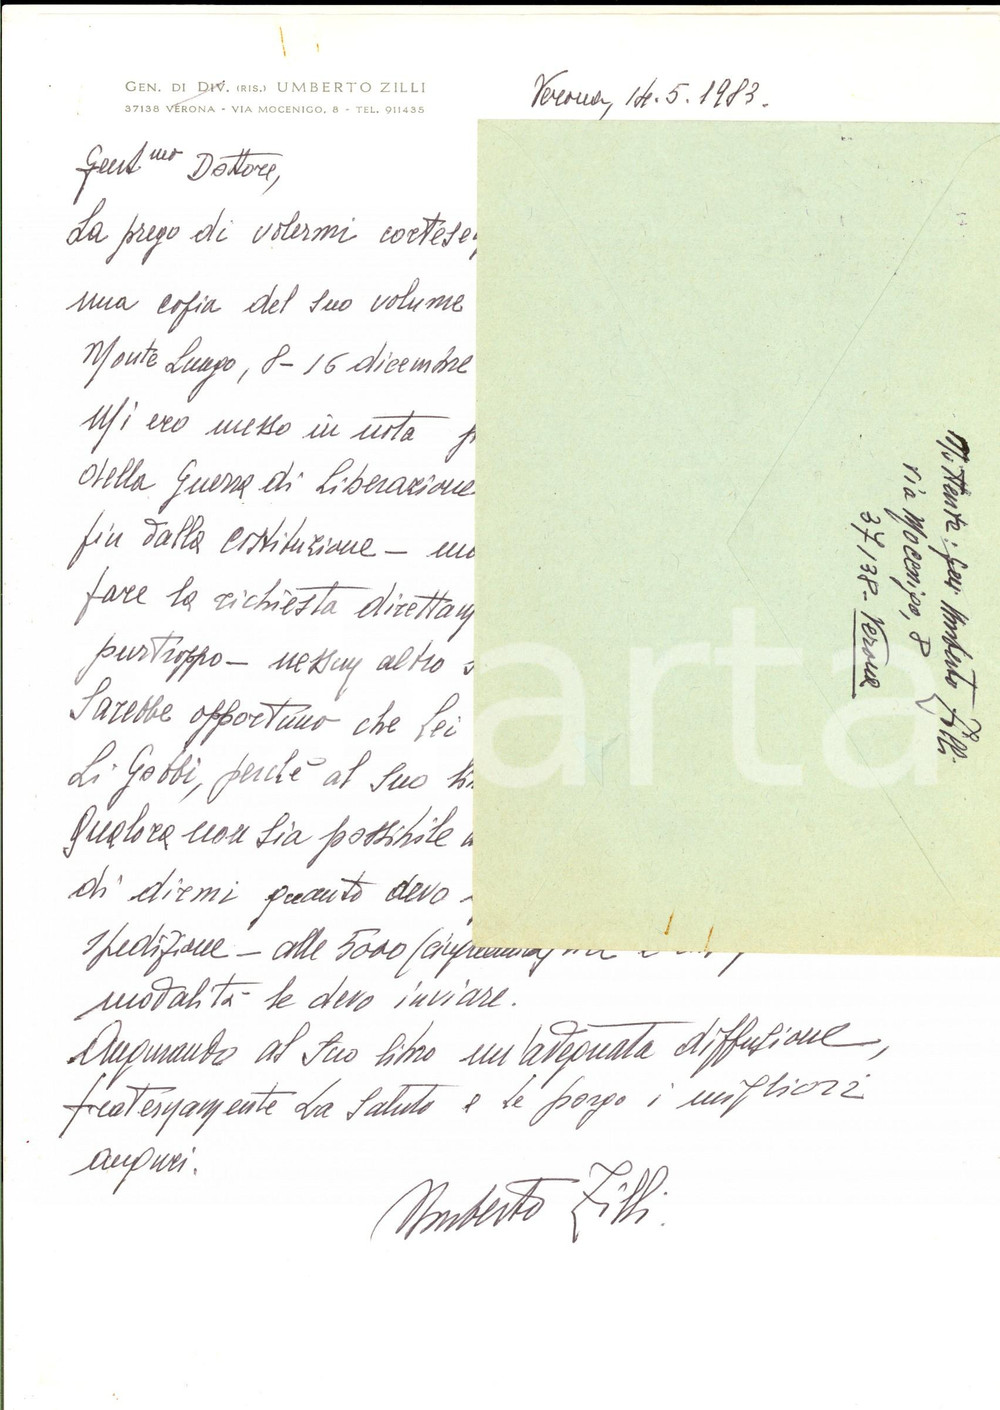 GEN. DI DIV. (RIS.) UMBERTO ZILLI
37138 VERONA - VIA MOCENIGO, 8 - TEL. 911435
Verona, 14.5.1983.
Gent.mo Dottore,
La prego di volermi cortese
una copia del Suo volume
Monte Lungo, 8-16 dicembre
Mi ero messo in nota
della Guerra di Liberazione
fin dalla costituzione -
fare la richiesta direttam
purtroppo - nessun altro
Sarebbe opportuno che Lei
Li Gobbi, perché al Suo
Qualora non sia possibile
di dirmi quanto devo
spedizione - alle 5000 (cinquemila)
modalità le devo inviare.
Augurando al Suo libro un'adeguata diffusione,
fraternamente La saluto e Le porgo i migliori
auguri.
Umberto Zilli.
Mittente: Gen. Umberto Zilli
Via Mocenigo, 8
37138 - Verona
arta